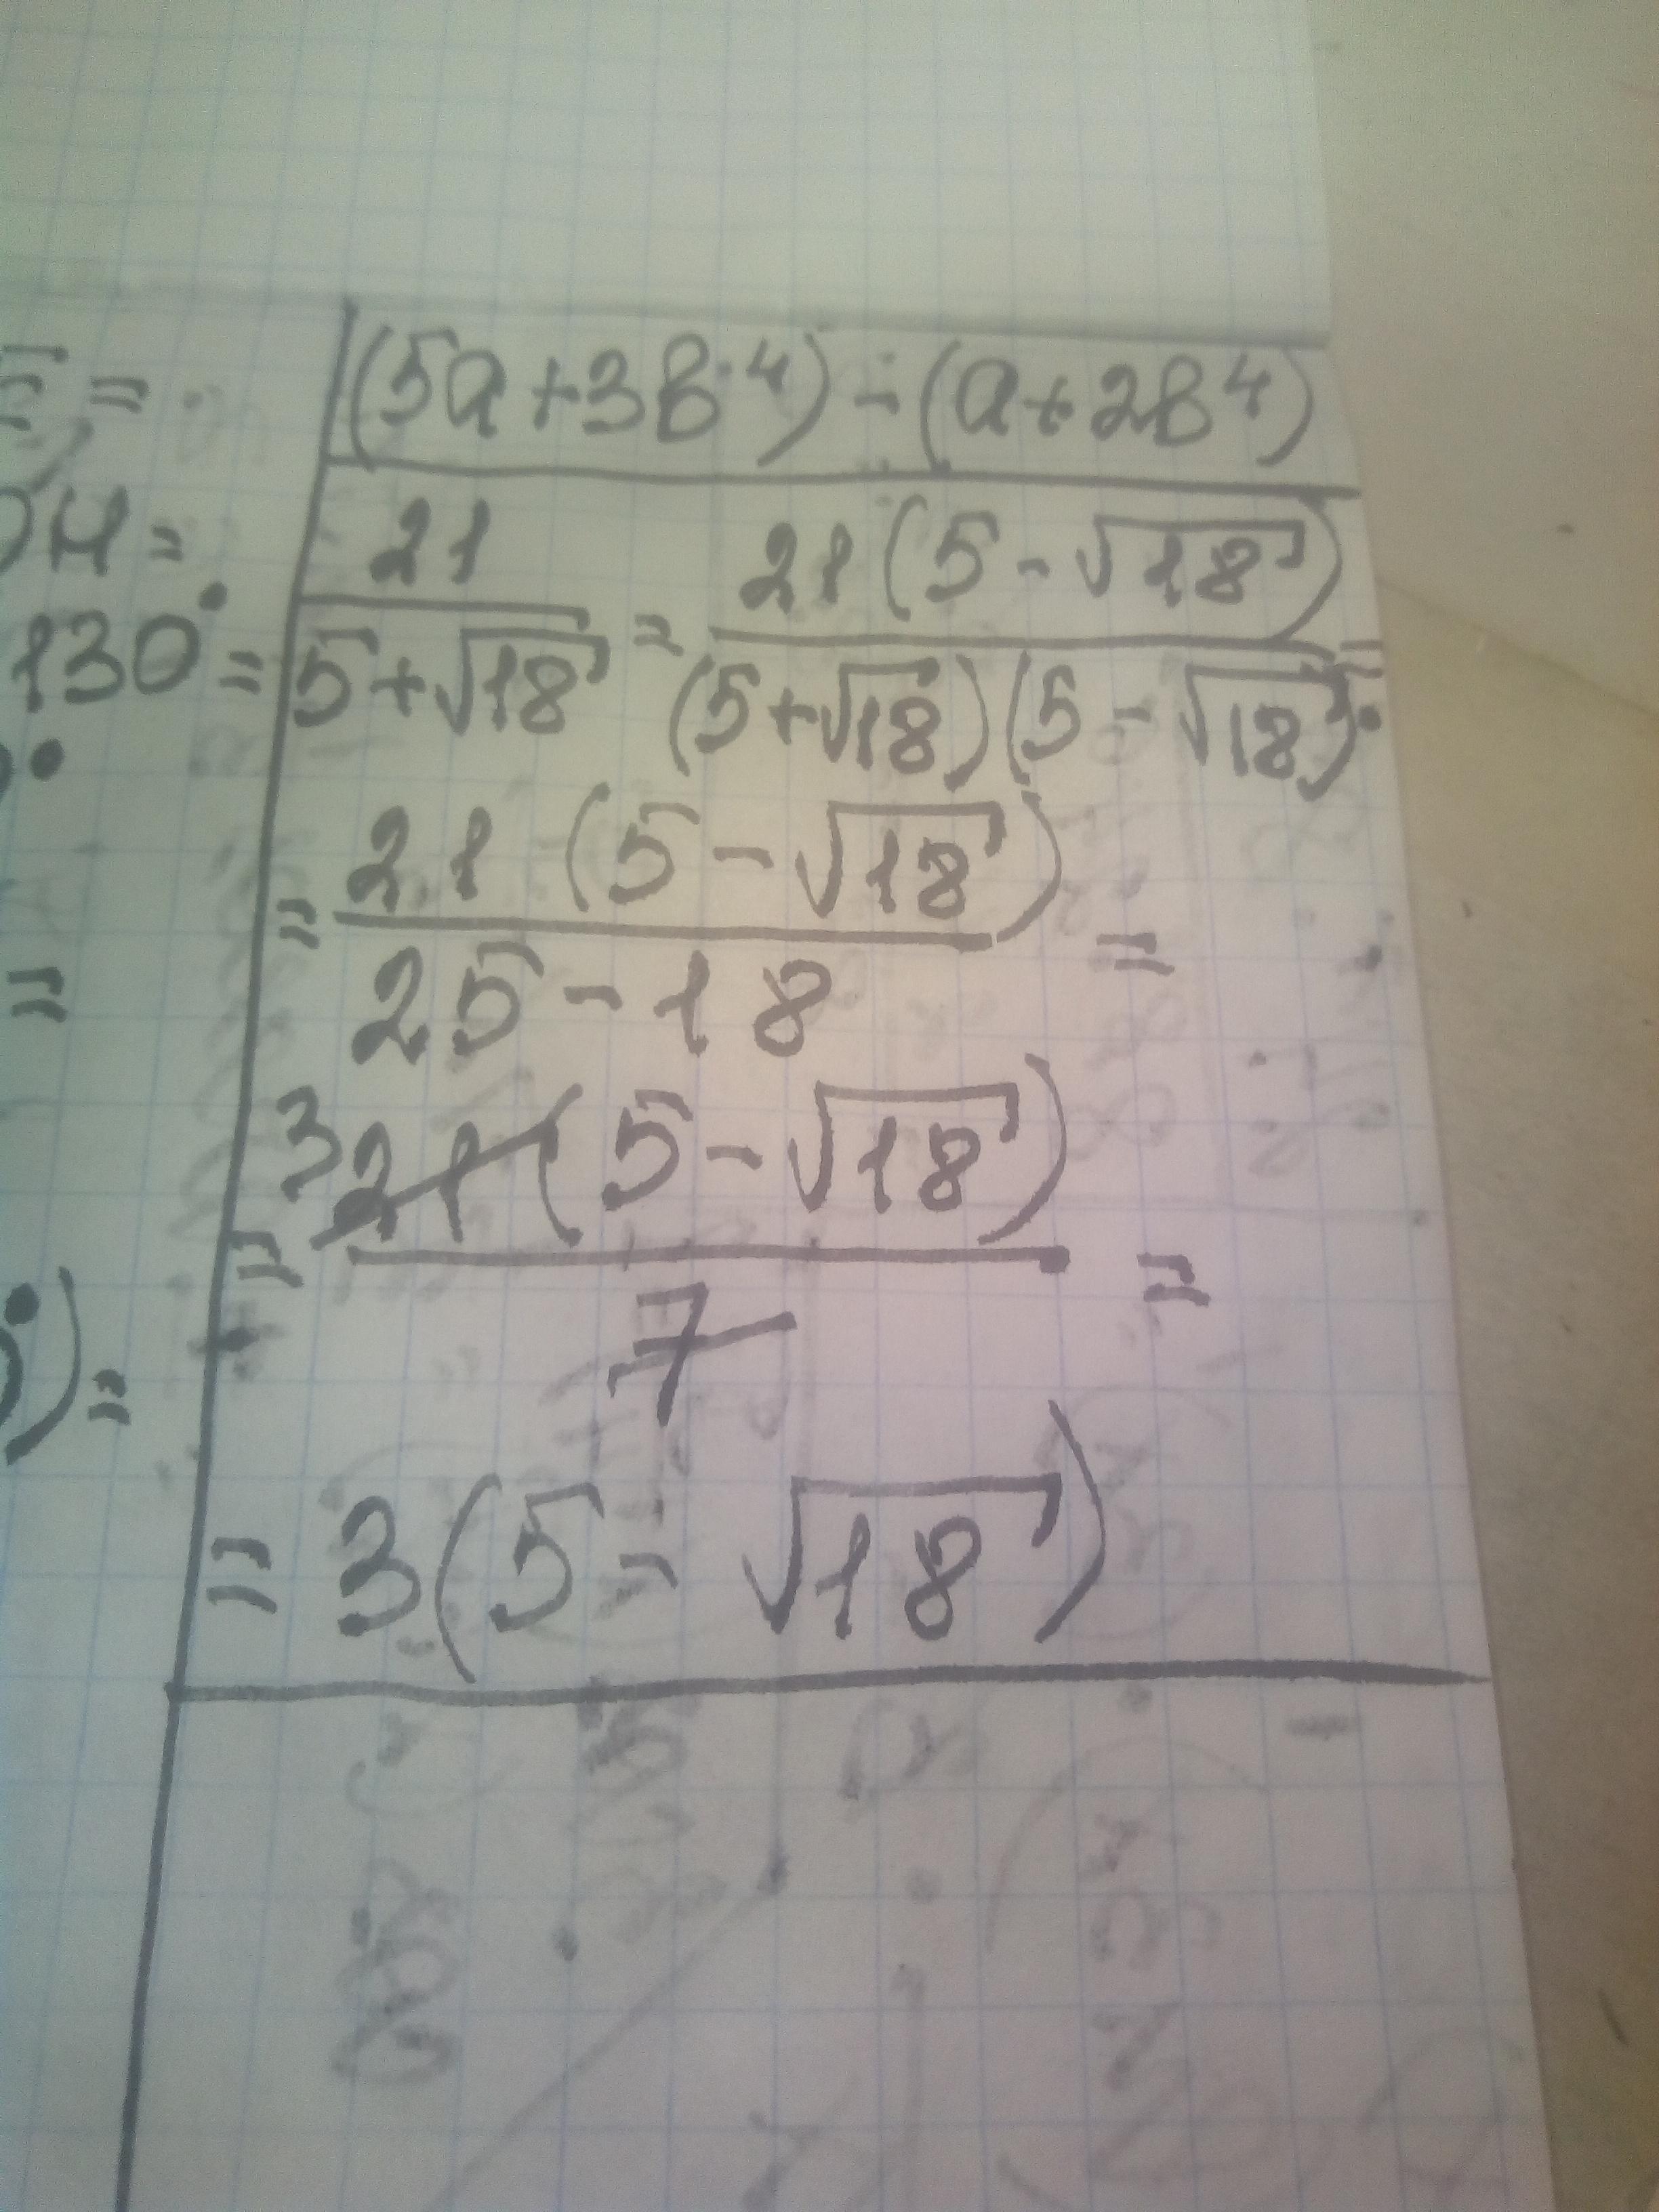 (5a+3b⁴) - (a+2b⁴)
21/(5+√18) = 21(5-√18)/((5+√18)(5-√18)) =
= 21(5-√18)/(25-18) =
= 3 21(5-√18)/7 =
= 3(5-√18)
=
=
130° =
=
) =